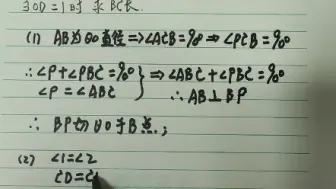 3 OD=1时 求BC长.
(1) AB为⊙O直径⇒∠ACB=90⇒∠PCB=90
∴∠P+∠PBC=90
∠P=∠ABC
} ⇒∠ABC+∠PBC=90
∴AB⊥BP
∴ BP切⊙O于B点;
(2) ∠1=∠2
CD=C